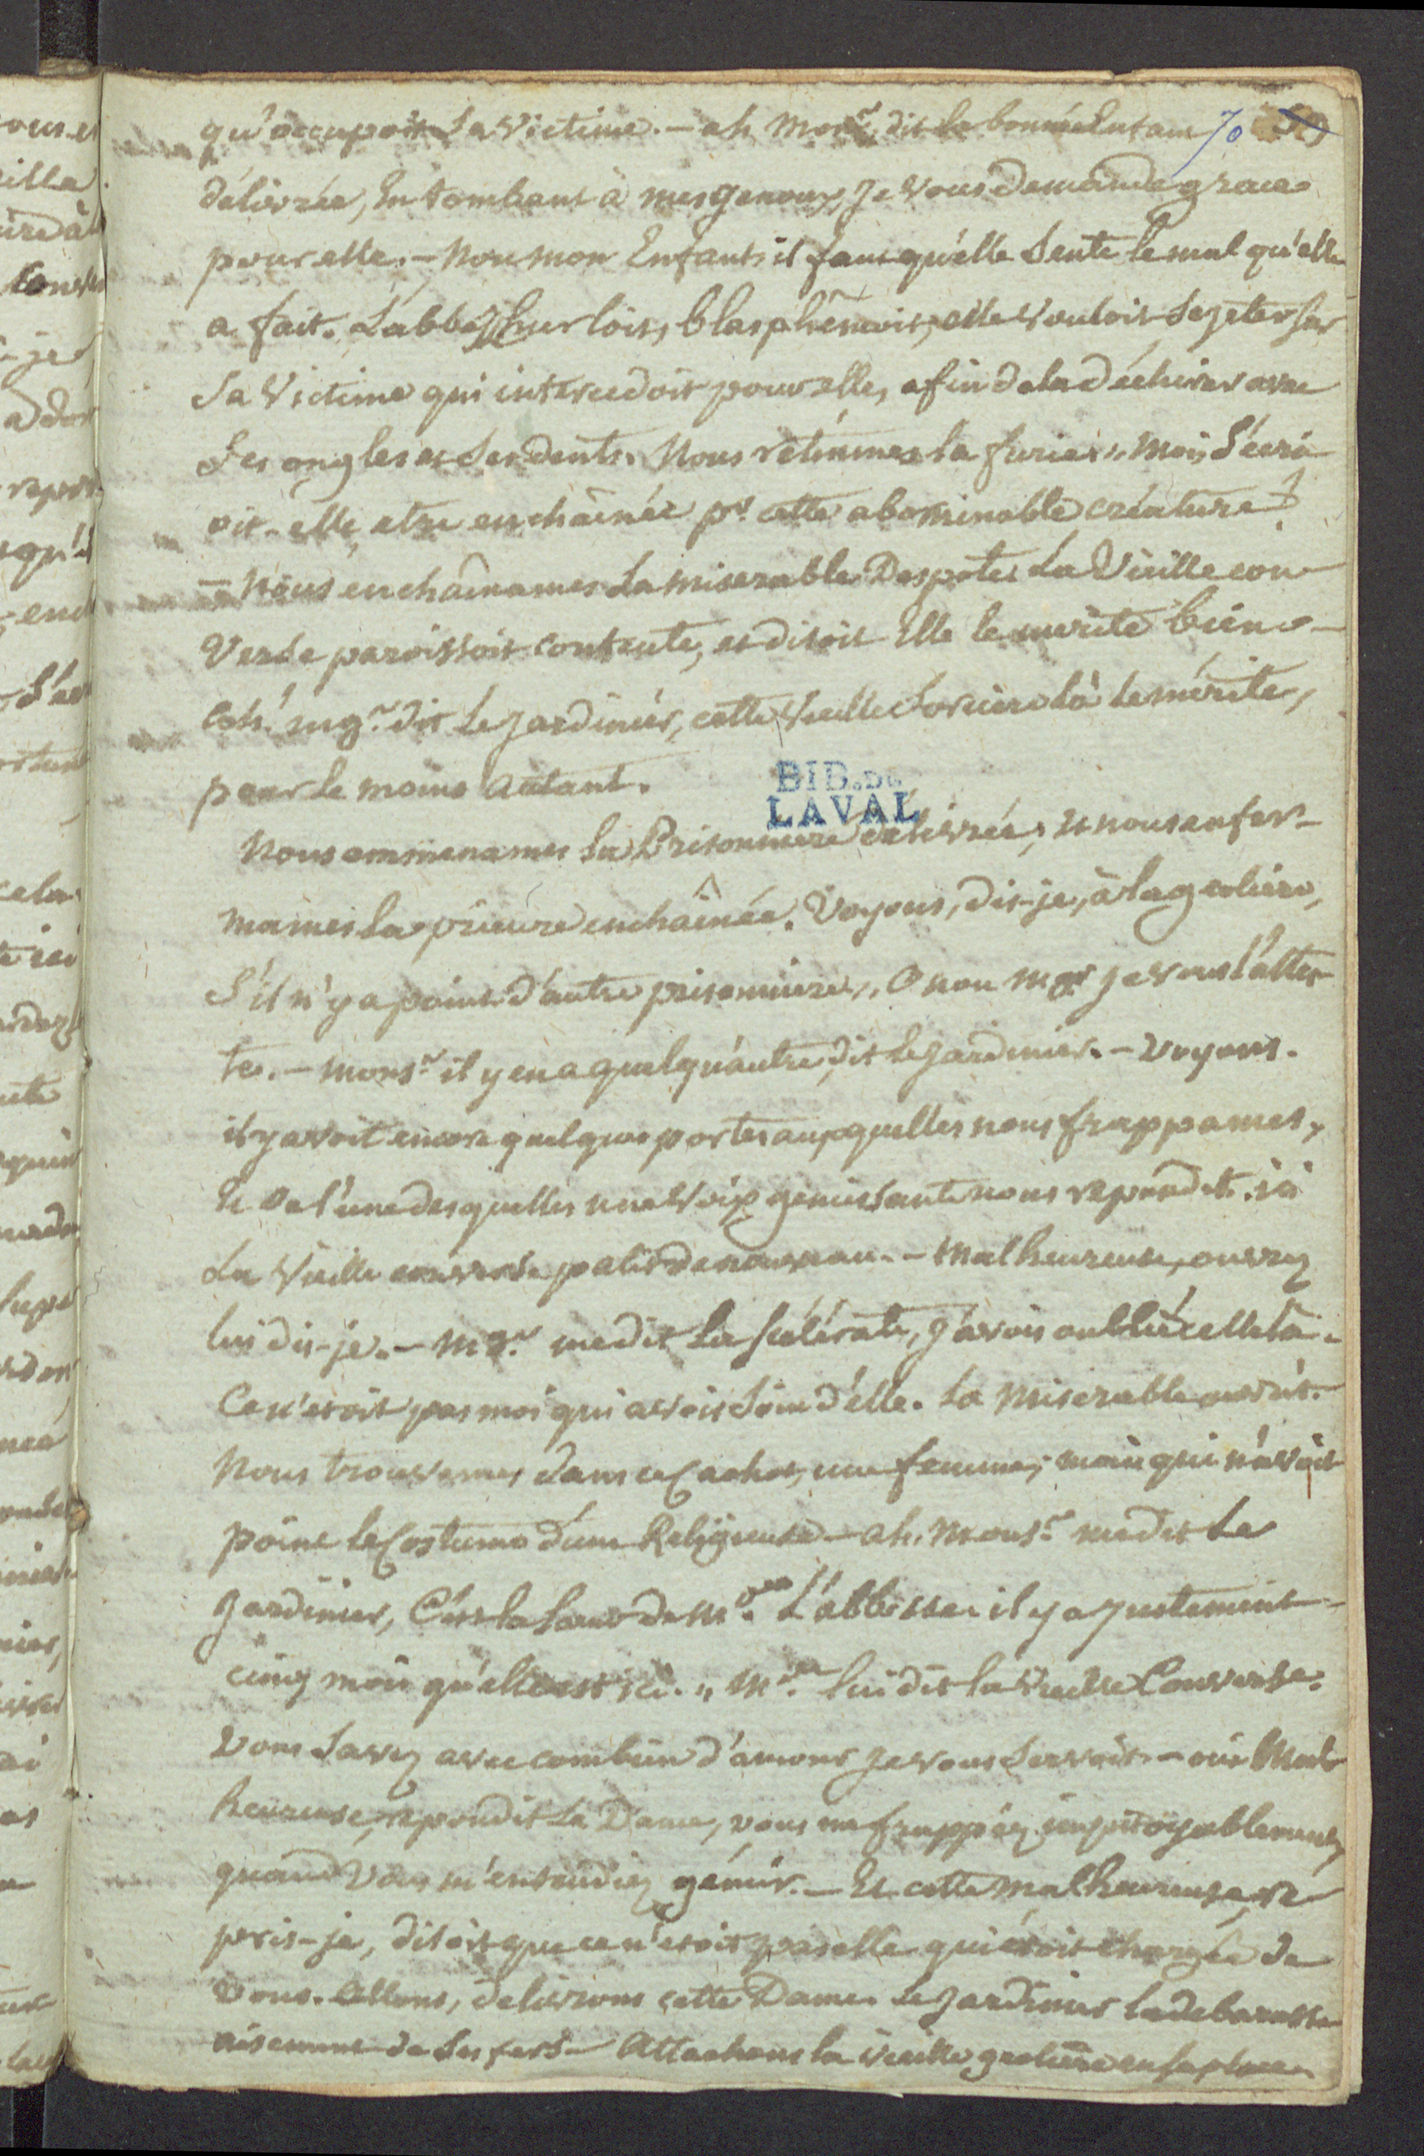 qu'occupoit sa victime. — ah Monsr. dit la bonne Enfant 70
délivrée, En tombant à mes genoux, Je vous demande grace
pour elle. — Non mon Enfant, il faut qu'elle sente le mal qu'elle
a fait. L'abbesse hurloit, blasphêmoit, elle vouloit se jeter sur
sa victime qui intercedoit pour elle, afin de la déchirer avec
ses ongles et ses dents. Nous retinmes la furie. " Moi, s'écri
oit-elle, etre enchaînée pr. cette abominable créature?
— Nous enchaînames la miserable Despote. La Vieille con
verse paroissoit contente, et disoit Elle le merite bien. —
Eh! mgr. dit le jardinier, cette vieille sorcière là le mérite,
pour le moins autant.
BIB. DE
LAVAL
Nous emmenames la Prisonniere délivrée, et nous enfer-
mames la prieure enchaînée. Voyons, dis-je, à la geoliere,
s'il n'y a point d'autre prisonniere,, O non mgr je vous l'attes-
te. — monsr. il y en a quelqu'autre, dit le jardinier. — Voyons.
il y avoit encore quelques portes auxquelles nous frappames,
et de l'une desquelles une voix gemissante nous repondit. ici
La Vieille converse palit de nouveau. — Malheureuse, ouvrez
lui dis-je. — Mgr. me dit la scélérate, j'avois oublié celle là.
Ce n'etoit pas moi qui avois soin d'elle. La Miserable ouvrit.
Nous trouvames dans ce Cachot, une femme, mais qui n'avoit
point le Costume d'une Religieuse — ah. Monsr. me dit le
Jardinier, C'est la sœur de Me. L'abbesse. il y a justement
cinq mois qu'elle est ici. " Me. lui dit la Vieille Converse.
Vous savez avec combien d'amour je vous servois. — oui Mal
heureuse, repondit la Dame, vous me frappiez impitoyablement
quand vous m'entendiez gémir. — Et cette malheureuse, re
pris-je, disoit que ce n'etoit pas elle qui étoit chargée de
vous. Allons, delivrons cette Dame. Le Jardinier la debarassa
aisement de ses fers. Attachons la vieille geoliere en sa place.